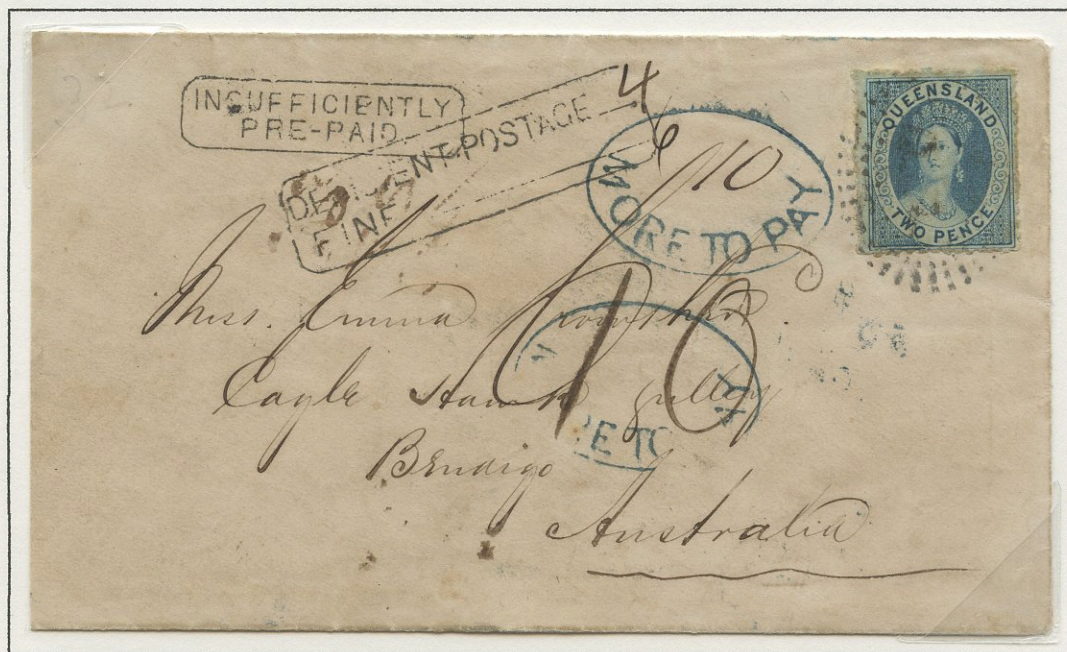 INSUFFICIENTLY
PRE-PAID
DEFICIENT POSTAGE 4
FINE 6
/10
MORE TO PAY
QUEENSLAND
TWO PENCE
Miss. Emma
10
RE TO AY
Eagle Hawk gulley
Bendigo
Australia